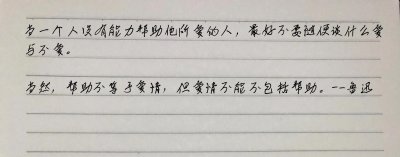 当一个人没有能力帮助他所爱的人，最好不要随便谈什么爱
与不爱。
当然，帮助不等于爱情，但爱情不能不包括帮助。--鲁迅